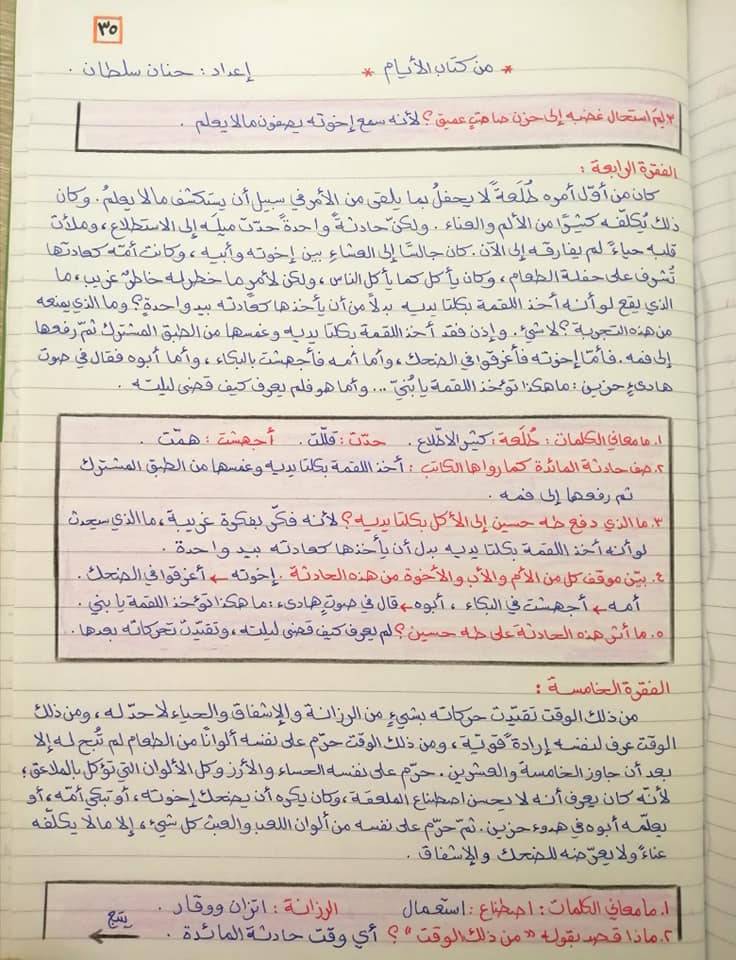 ٣٥
* من كتاب الأيام * إعداد : حنان سلطان .
٣. لِمَ استحال غضبه إلى حزن صامتٍ عميق ؟ لأنه سمع إخوته يصفون ما لا يعلم .
الفقرة الرابعة :
كان من أوّل أمره طُلَعَةً لا يحفلُ بما يلقى من الأمر في سبيل أن يستكشف ما لا يعلمُ . وكان
ذلك يُكلّفه كثيرًا من الألم والعناء . ولكنّ حادثةً واحدةً حدّت ميلَه إلى الاستطلاع ، وملأت
قلبه حياءً لم يفارقه إلى الآن . كان جالسًا إلى العشاء بين إخوته وأبيه ، وكانت أمّه كعادتها
تُشرف على حفلة الطعام ، وكان يأكل كما يأكل الناس ، ولكن لأمرٍ ما خطر له خاطرٌ غريب ، ما
الذي يقع لو أنه أخذ اللقمة بكلتا يديه بدلاً من أن يأخذها كعادته بيد واحدةٍ ؟ وما الذي يمنعه
من هذه التجربة ؟ لا شيء . وإذن فقد أخذ اللقمة بكلتا يديه وغمسها من الطبق المشترك ثمّ رفعها
إلى فمه . فأمّا إخوته فأغرقوا في الضحك ، وأما أمه فأجهشت بالبكاء ، وأما أبوه فقال في صوت
هادئٍ حزين : ما هكذا تؤخذ اللقمة يا بُنيّ ... وأما هو فلم يعرف كيف قضى ليلته .
١. ما معاني الكلمات : طُلَعة : كثير الاطّلاع . حدّت : قلّلت . أجهشت : همّت .
٢. صف حادثة المائدة كما رواها الكاتب : أخذ اللقمة بكلتا يديه وغمسها من الطبق المشترك
ثم رفعها إلى فمه .
٣. ما الذي دفع طه حسين إلى الأكل بكلتا يديه ؟ لأنه فكّر بفكرة غريبة ، ما الذي سيحدث
لو أنه أخذ اللقمة بكلتا يديه بدل أن يأخذها كعادته بيد واحدة .
٤. بيّن موقف كل من الأم والأب والأخوة من هذه الحادثة . إخوته ← أغرقوا في الضحك .
أمه ← أجهشت في البكاء ، أبوه ← قال في صوتٍ هادىء : ما هكذا تؤخذ اللقمة يا بني .
٥. ما أثر هذه الحادثة على طه حسين ؟ لم يعرف كيف قضى ليلته ، وتقيّدت تحركاته بعدها .
الفقرة الخامسة :
من ذلك الوقت تقيّدت حركاته بشيءٍ من الرزانة والإشفاق والحياء لا حدّ له ، ومن ذلك
الوقت عرف لنفسه إرادةً قويّة ، ومن ذلك الوقت حرّم على نفسه ألوانًا من الطعام لم تُبح له إلا
بعد أن جاوز الخامسة والعشرين . حرّم على نفسه الحساء والأرز وكل الألوان التي تؤكل بالملاعق ؛
لأنه كان يعرف أنه لا يحسن اصطناع الملعقة ، وكان يكره أن يضحك إخوته ، أو تبكي أمّه ، أو
يعلّمه أبوه في هدوء حزين . ثمّ حرّم على نفسه من ألوان اللعب والعبث كل شيء ، إلا ما لا يكلّفه
عناءً ولا يعرّضه للضحك والإشفاق .
١. ما معاني الكلمات : اصطناع : استعمال الرزانة : اتزان ووقار .
٢. ماذا قصد بقوله « من ذلك الوقت » ؟ أي وقت حادثة المائدة . يتبع ←